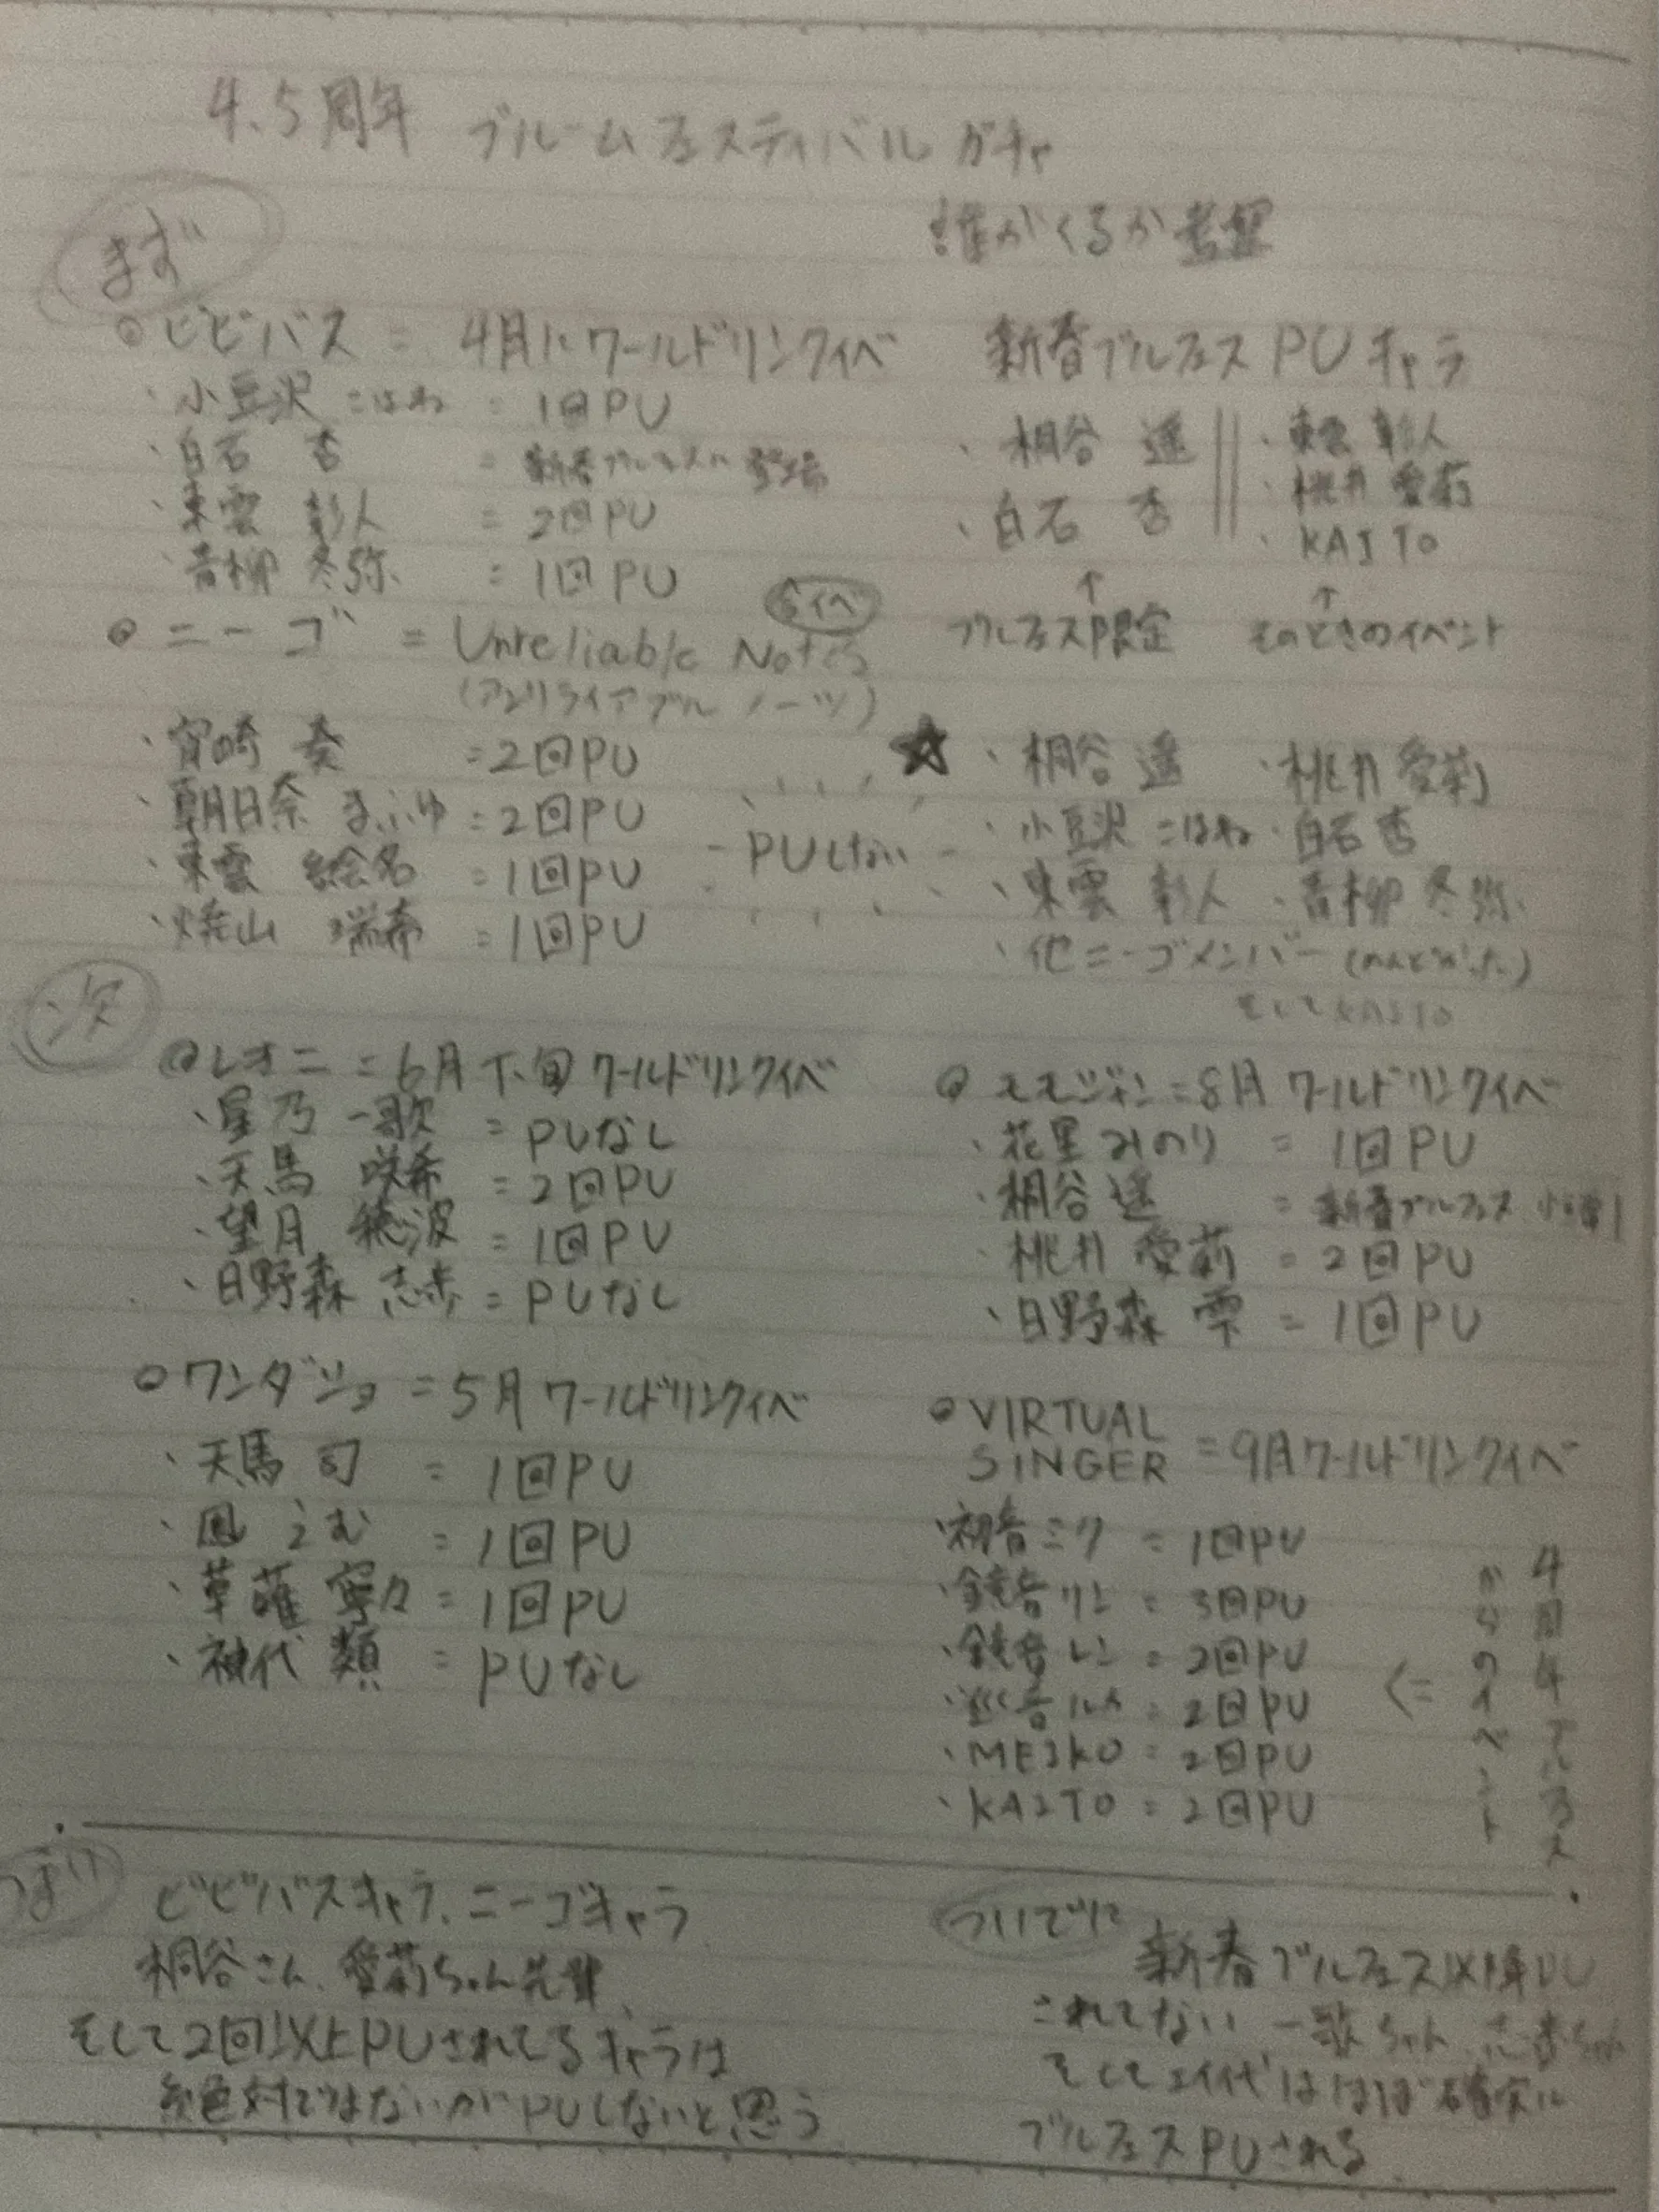 4.5周年 ブルームフェスティバル ガチャ
誰がくるか考察
まず
◎ビビバス = 4月にワールドリンクイベ
・小豆沢 こはね = 1回PU
・白石 杏 = 新春ブルフェスに登場
・東雲 彰人 = 2回PU
・青柳 冬弥 = 1回PU
新春ブルフェス PUキャラ
・桐谷 遥
・白石 杏
・東雲 彰人
・桃井 愛莉
・KAITO
↑
ブルフェス限定
↑
そのときのイベント
◎ニーゴ = Unreliable Notes
(アンリライアブル ノーツ)
・宵崎 奏 = 2回PU
・朝比奈 まふゆ = 2回PU
・東雲 絵名 = 1回PU
・暁山 瑞希 = 1回PU
PUしない
☆ ・桐谷 遥 ・桃井 愛莉
・小豆沢 こはね ・白石 杏
・東雲 彰人 ・青柳 冬弥
・他ニーゴメンバー
そしてKAITO
次
◎レオニ = 6月下旬 ワールドリンクイベ
・星乃 一歌 = PUなし
・天馬 咲希 = 2回PU
・望月 穂波 = 1回PU
・日野森 志歩 = PUなし
◎モモジャン = 8月 ワールドリンクイベ
・花里 みのり = 1回PU
・桐谷 遥 = 新春ブルフェス
・桃井 愛莉 = 2回PU
・日野森 雫 = 1回PU
◎ワンダショ = 5月 ワールドリンクイベ
・天馬 司 = 1回PU
・鳳 えむ = 1回PU
・草薙 寧々 = 1回PU
・神代 類 = PUなし
◎VIRTUAL
SINGER = 9月 ワールドリンクイベ
・初音ミク = 1回PU
・鏡音リン = 3回PU
・鏡音レン = 2回PU
・巡音ルカ = 2回PU
・MEIKO = 2回PU
・KAITO = 2回PU
<=
4周年ブルフェス
からのイベント
ビビバスキャラ、ニーゴキャラ
桐谷さん、愛莉ちゃん先輩、
そして2回以上PUされてるキャラは
絶対ではないがPUしないと思う
ついでに
新春ブルフェス以降PU
されてない 一歌ちゃん、志歩ちゃん
そして は ほぼ確実に
ブルフェスPUされる